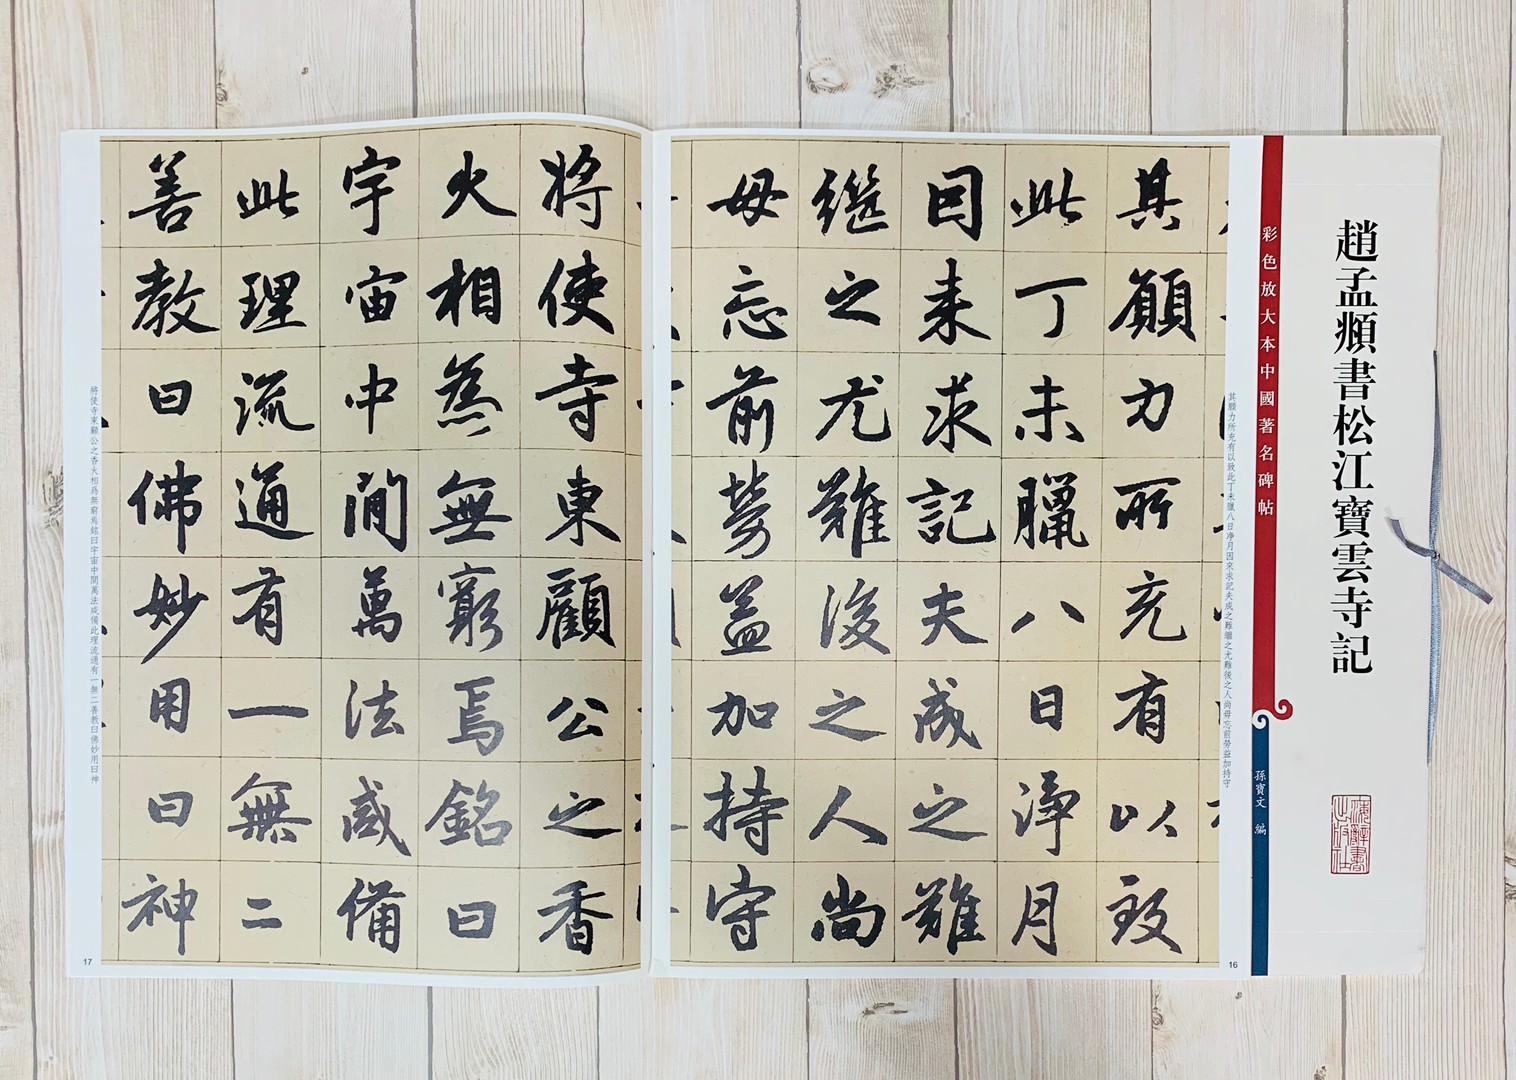 趙孟頫書松江寶雲寺記
彩色放大本中國著名碑帖
孫寶文 編
其願力所充有以致此丁未臘八日净月因來求記夫成之難繼之尤難後之人尚毋忘前勞益加持守
其願力所充有以致
此丁未臘八日淨月
因来求記夫成之難
繼之尤難後之人尚
毋忘前勞益加持守
16
將使寺東顧公之香
火相為無窮焉銘曰
宇宙中間萬法咸備
此理流通有一無二
善教曰佛妙用曰神
將使寺東顧公之香火相爲無窮焉銘曰宇宙中間萬法咸備此理流通有一無二善教曰佛妙用曰神
17